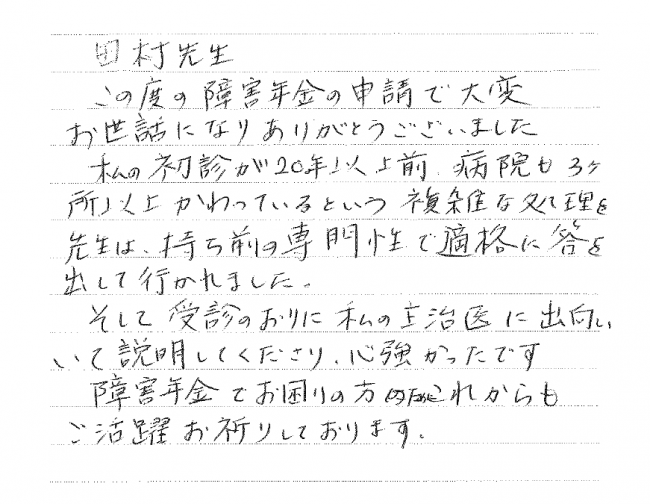 田村先生
この度の障害年金の申請で大変
お世話になりありがとうございました
私の初診が20年以上前、病院も3ヶ
所以上かわっているという複雑な処理を
先生は、持ち前の専門性で適格に答を
出して行かれました。
そして受診のおりに私の主治医に出向い
いて説明してくださり、心強かったです
障害年金でお困りの方 これからも
ご活躍お祈りしております。